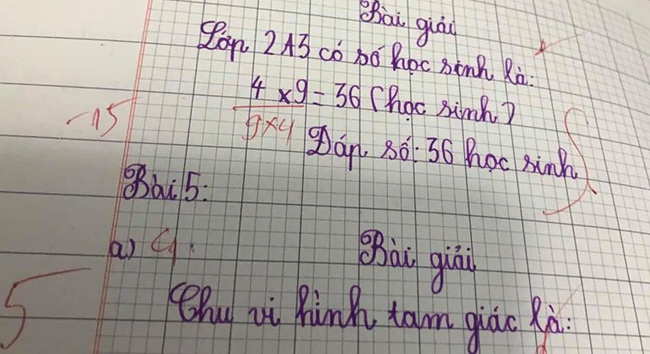 Bài giải
Lớp 2A3 có số học sinh là:
4 x 9 = 36 (học sinh)
-15
9x4
Đáp số: 36 học sinh
Bài 5:
a) 9.
Bài giải
5
Chu vi hình tam giác là: